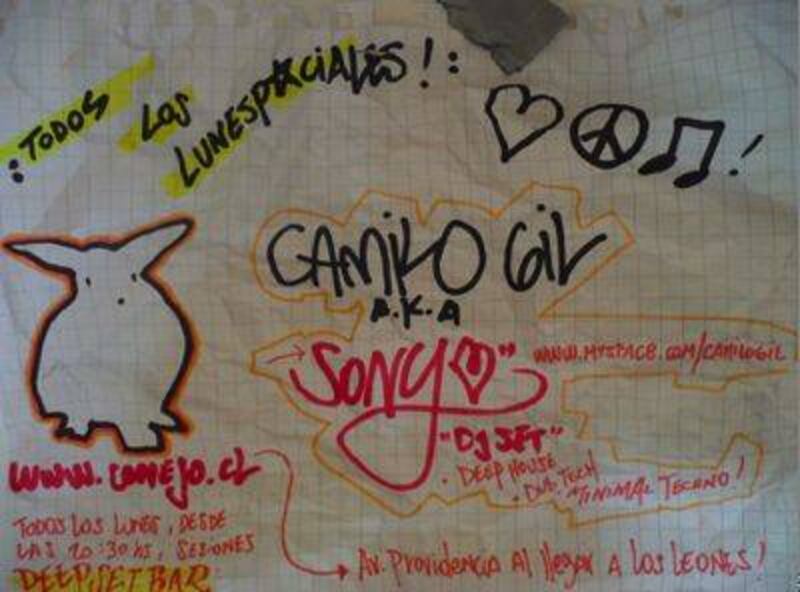 :TODOS
LOS
LUNESPACIALES!:
CAMILO GIL
A.K.A
SONY"
WWW.MYSPACE.COM/CAMILOGIL
"DJ SET"
. DEEP HOUSE
. DUB. TECH
. MINIMAL TECHNO!
WWW.CONEJO.CL
TODOS LOS LUNES, DESDE
LAS 20:30 hs, SESIONES
DEEPSET BAR
Av. Providencia Al llegar A Los LEONES!